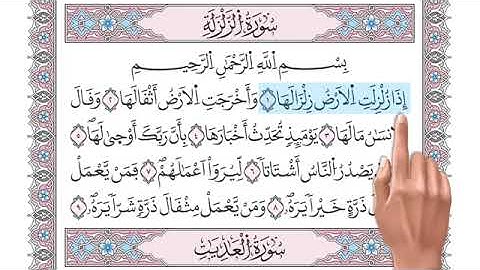 سُورَةُ الزَّلْزَلَةِ
بِسْمِ اللَّهِ الرَّحْمَٰنِ الرَّحِيمِ
إِذَا زُلْزِلَتِ الْأَرْضُ زِلْزَالَهَا ١ وَأَخْرَجَتِ الْأَرْضُ أَثْقَالَهَا ٢ وَقَالَ
نسَٰنُ مَا لَهَا ٣ يَوْمَئِذٍ تُحَدِّثُ أَخْبَارَهَا ٤ بِأَنَّ رَبَّكَ أَوْحَىٰ لَهَا ٥
يَصْدُرُ النَّاسُ أَشْتَاتًا ٦ لِّيُرَوْا أَعْمَالَهُمْ ٧ فَمَن يَعْمَلْ
ذَرَّةٍ خَيْرًا يَرَهُ ٨ وَمَن يَعْمَلْ مِثْقَالَ ذَرَّةٍ شَرًّا يَرَهُ ٩
سُورَةُ الْعَٰدِيَٰتِ